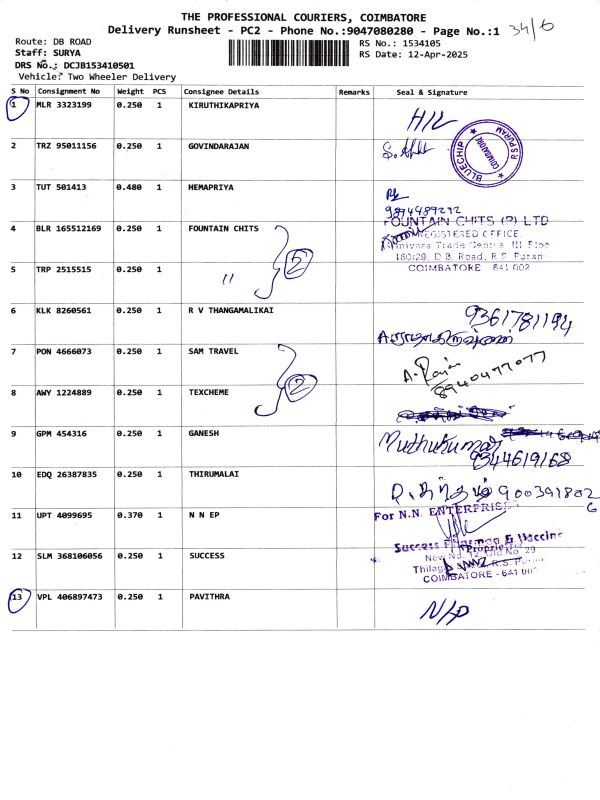 THE PROFESSIONAL COURIERS, COIMBATORE
Delivery Runsheet - PC2 - Phone No.:9047080280 - Page No.:1 34/6
Route: DB ROAD
Staff: SURYA
DRS No.: DCJB153410501
Vehicle: Two Wheeler Delivery
RS No.: 1534105
RS Date: 12-Apr-2025
S No Consignment No Weight PCS Consignee Details Remarks Seal & Signature
1 MLR 3323199 0.250 1 KIRUTHIKAPRIYA
BLUECHIP COIMBATORE R S PURAM
2 TRZ 95011156 0.250 1 GOVINDARAJAN
3 TUT 501413 0.480 1 HEMAPRIYA
9894489292
4 BLR 165512169 0.250 1 FOUNTAIN CHITS 2
FOUNTAIN CHITS (P) LTD
REGISTERED OFFICE
Trade Centre III Floor
160/29, D.B. Road, R.S. Puram
COIMBATORE 641 002
5 TRP 2515515 0.250 1 "
6 KLK 8260561 0.250 1 R V THANGAMALIKAI
9361781194
7 PON 4666073 0.250 1 SAM TRAVEL 2
8940477077
8 AWY 1224889 0.250 1 TEXCHEME
9 GPM 454316 0.250 1 GANESH
Muthukumar
9344619168
10 EDQ 26387835 0.250 1 THIRUMALAI
9003918026
11 UPT 4099695 0.370 1 N N EP
For N.N. ENTERPRISES
Proprietor
12 SLM 368106056 0.250 1 SUCCESS
Success Pharma & Vaccine
New No. 12, Old No 29
R.S. Puram
COIMBATORE - 641 002
13 VPL 406897473 0.250 1 PAVITHRA
N/P